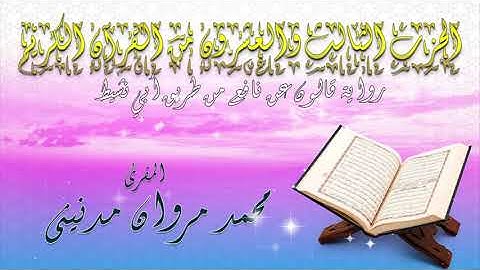 الحزب الثالث والعشرون من القرآن الكريم
رواية قالون عن نافع من طريق أبي نشيط
المقرئ
محمد مروان مدنيني